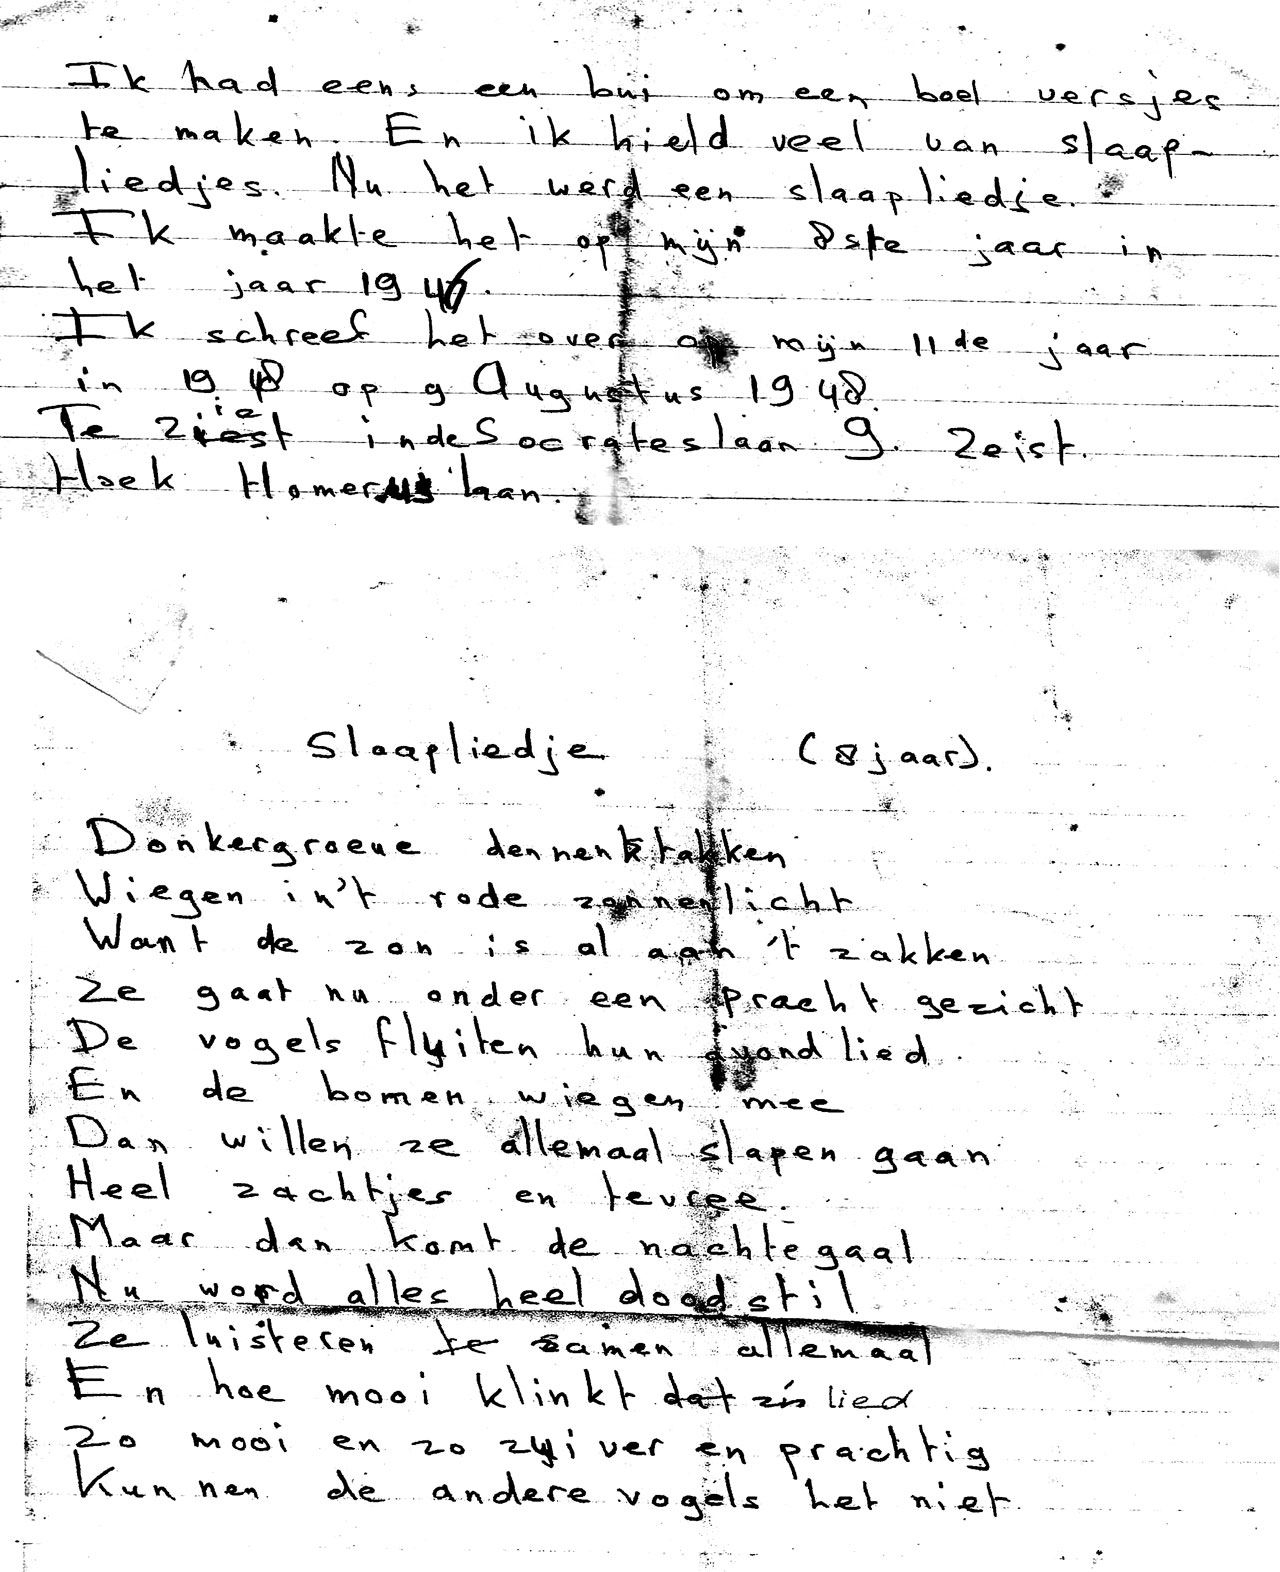 Ik had eens een bui om een boel versjes
te maken. En ik hield veel van slaap-
liedjes. Nu het werd een slaapliedje.
Ik maakte het op mijn 8ste jaar in
het jaar 1946.
Ik schreef het over op mijn 11de jaar
in 1948 op 9 Augustus 1948.
Te Zeist in de Socrateslaan 9. Zeist.
Hoek Homeruslaan.
Slaapliedje (8 jaar).
Donkergroene dennentakken
Wiegen in 't rode zonnenlicht
Want de zon is al aan 't zakken
Ze gaat nu onder een pracht gezicht
De vogels fluiten hun avondlied.
En de bomen wiegen mee
Dan willen ze allemaal slapen gaan
Heel zachtjes en tevree.
Maar dan komt de nachtegaal
Nu word alles heel doodstil
Ze luisteren te samen allemaal
En hoe mooi klinkt dat zijn lied
Zo mooi en zo zuiver en prachtig
Kunnen de andere vogels het niet.